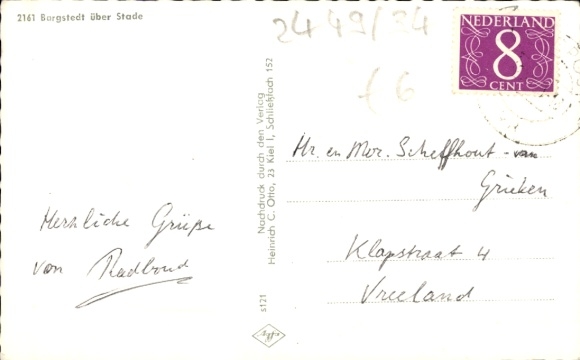 2161 Bargstedt über Stade
2449/34
£6
NEDERLAND
8
CENT
Nachdruck durch den Verlag
Heinrich C. Otto, 23 Kiel 1, Schließfach 152
s121
Hr. en Mvr. Scheffhout - van
Grieken
Klapstraat 4
Vreeland
Herzliche Grüße
von Radboud